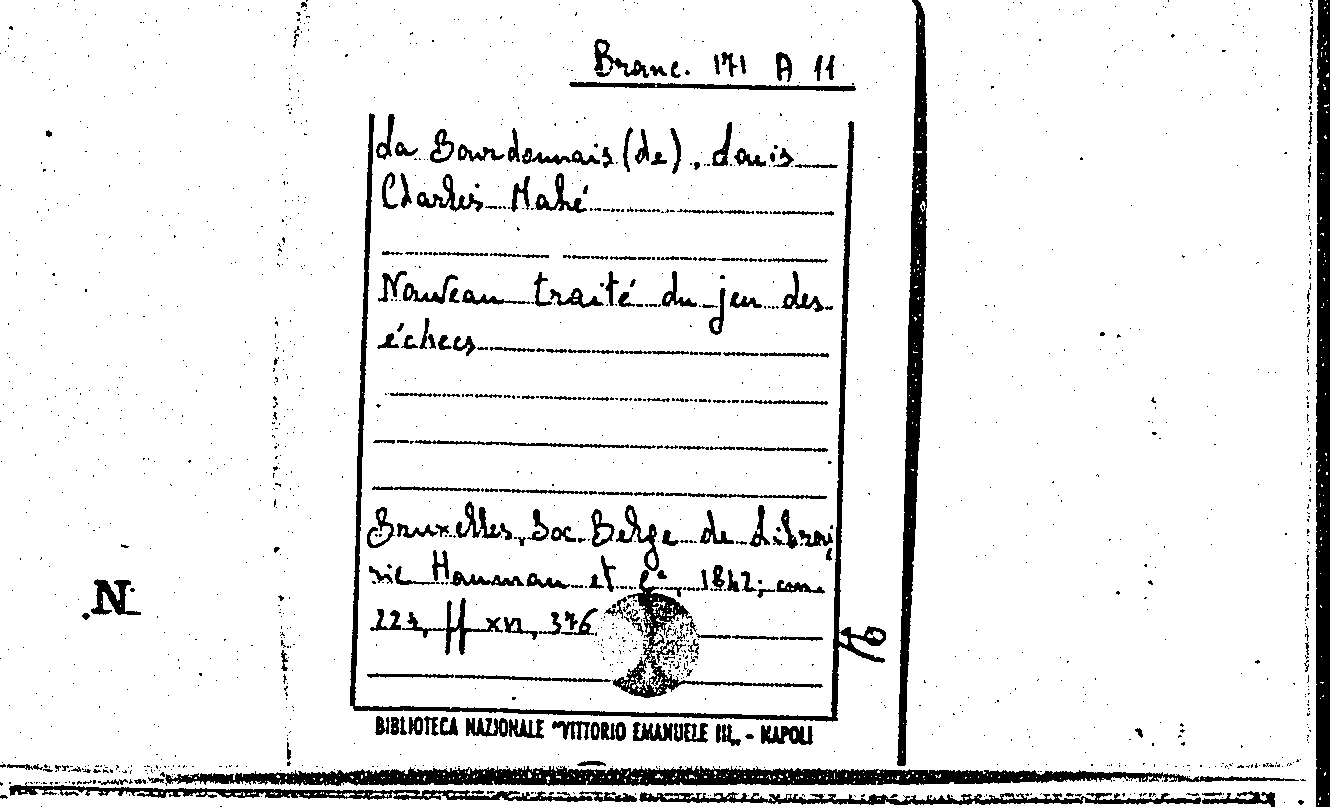 Branc. 171 A 11
La Bourdonnais (de), Louis
Charles Mahé
Nouveau traité du jeu des
échecs
Bruxelles, Soc. Belge de Librai
rie Hauman et Cᵉ, 1842; cm.
22½, pp XVI, 376
N
BIBLIOTECA NAZIONALE "VITTORIO EMANUELE III„ - NAPOLI